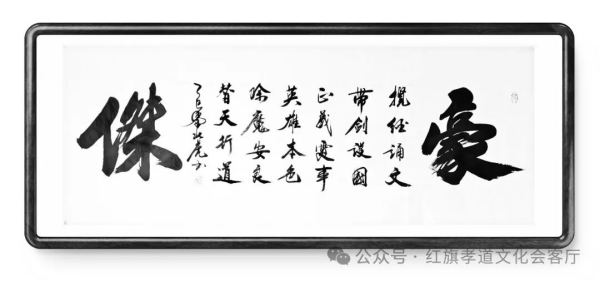 豪
攬经誦文
帶劍護國
正義處事
英雄本色
除魔安良
替天行道
傑
公众号 · 红旗孝道文化会客厅